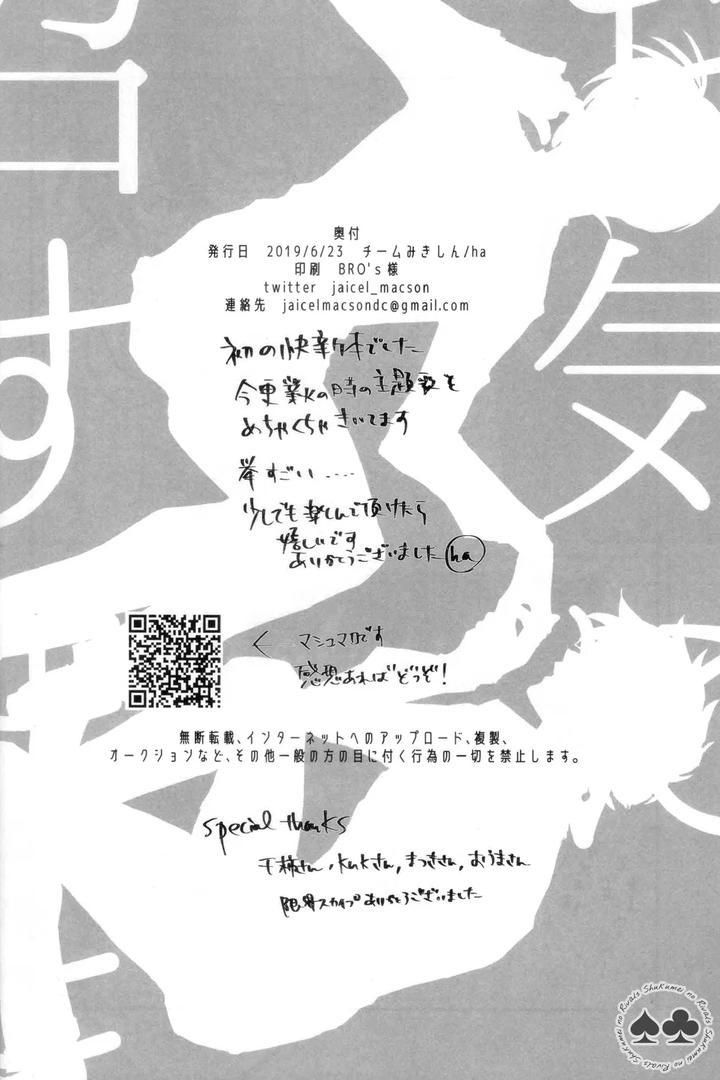 奥付
発行日 2019/6/23 チームみきしん/ha
印刷 BRO's様
twitter jaicel_macson
連絡先 jaicelmacsondc@gmail.com
初の快新本でした
今更業火の時の主題歌を
めちゃくちゃきいてます
拳すごい……
少しでも楽しんで頂けたら
嬉しいです
ありがとうございました ha
← マシュマロです
感想あればどうぞ!
無断転載、インターネットへのアップロード、複製、
オークションなど、その他一般の方の目に付く行為の一切を禁止します。
special thanks
千柿さん、kukさん、まつきさん、おうまさん
限界スカイプありがとうございました
Shukumei no Rivals Shukumei no Rivals